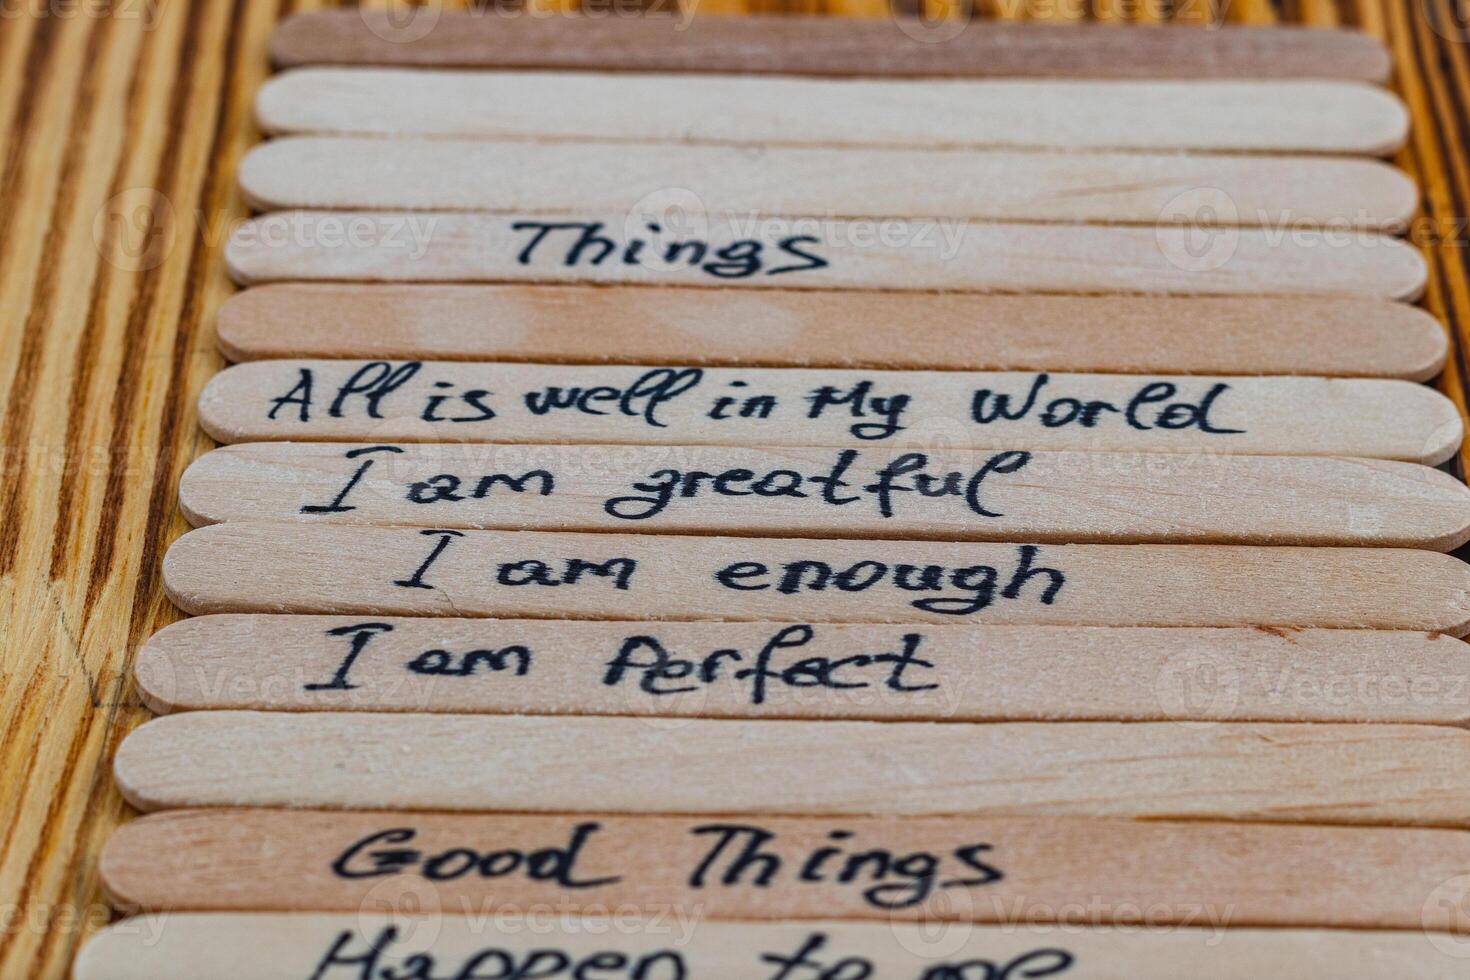 Things
All is well in My World
I am greatful
I am enough
I am Perfect
Good Things
Happen to me